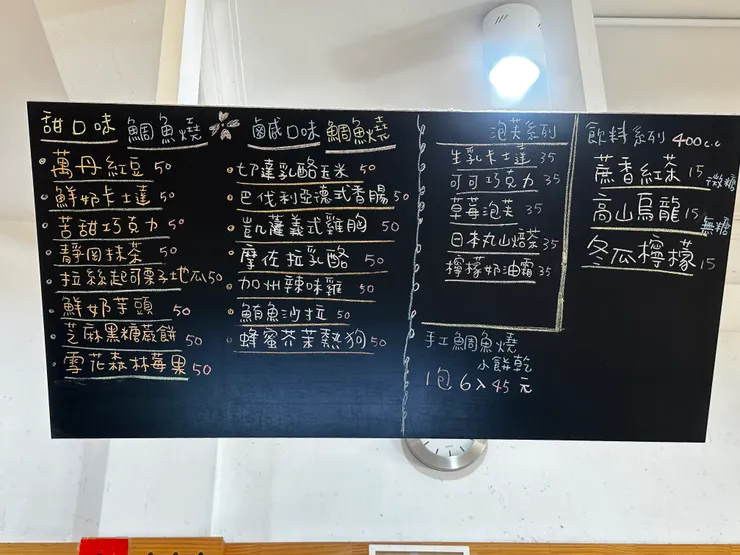 甜口味 鯛魚燒
萬丹紅豆 50
鮮奶卡士達 50
苦甜巧克力 50
靜岡抹茶 50
拉絲起司栗子地瓜 50
鮮奶芋頭 50
芝麻黑糖蕨餅 50
雪花森林莓果 50
鹹口味 鯛魚燒
切達乳酪玉米 50
巴伐利亞德式香腸 50
凱薩義式雞胸 50
摩佐拉乳酪 50
加州辣味雞 50
鮪魚沙拉 50
蜂蜜芥茉熱狗 50
泡芙系列
生乳卡士達 35
可可巧克力 35
草莓泡芙 35
日本丸山焙茶 35
檸檬奶油霜 35
手工鯛魚燒
小餅乾
1包6入45元
飲料系列 400c.c
蔗香紅茶 15 微糖
高山烏龍 15 無糖
冬瓜檸檬 15